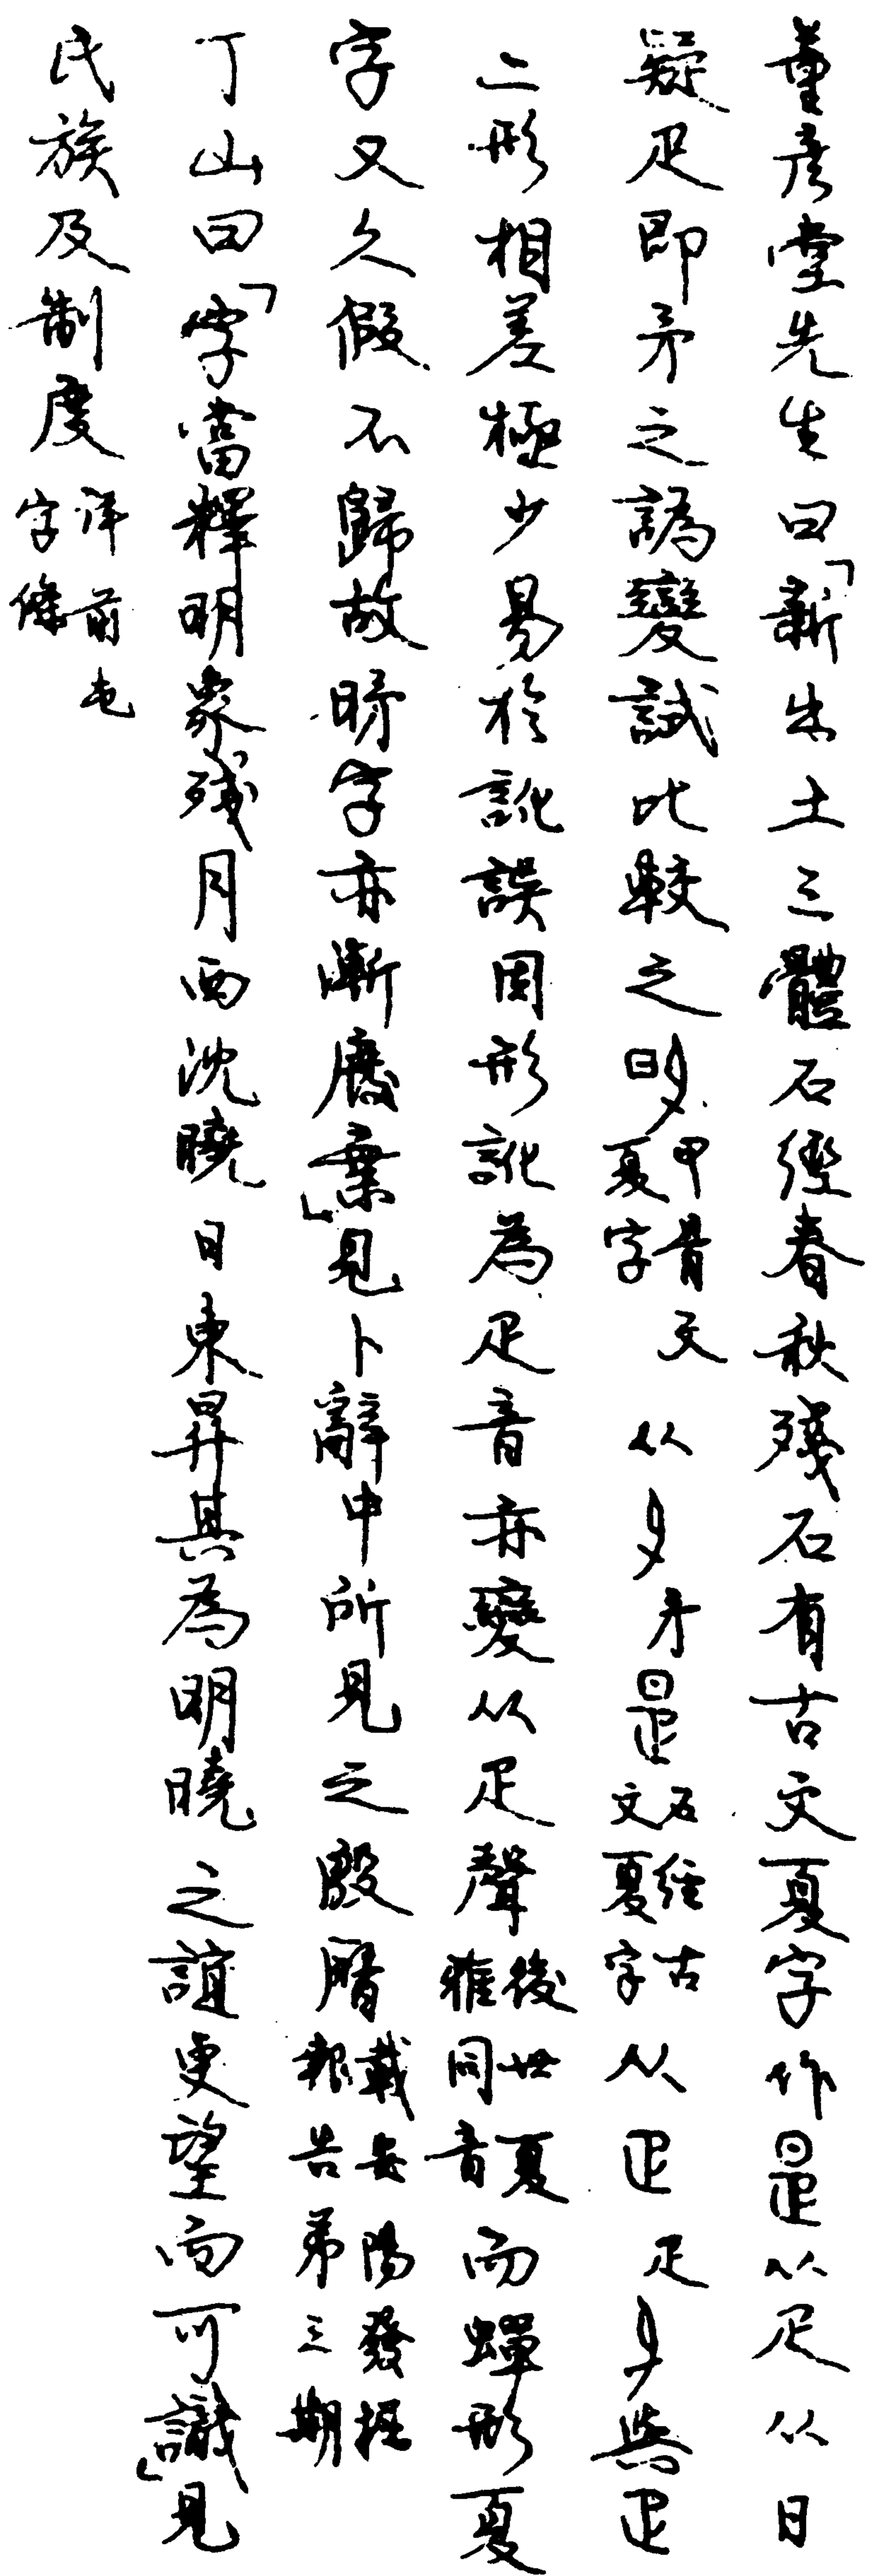 董彥堂先生曰「新出土三體石經春秋殘石有古文夏字作昰从疋从日
疑疋即矛之譌變試比較之 甲骨文夏字 从 矛昰石經古文夏字从 疋 與
二形相差極少易於訛誤因形訛為疋音亦變从疋聲後世夏雅同音而蟬形夏
字又久假不歸故 字亦漸廢棄」見卜辭中所見之殷曆載安陽發掘報告第三期
丁山曰「 當釋明象殘月西沈曉日東昇其為明曉之誼更望而可識」見
氏族及制度詳前屯字條